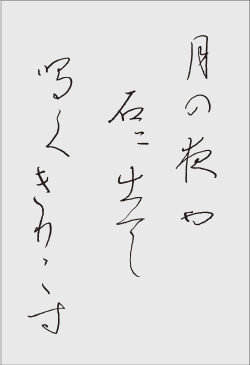 月の夜や
石に出て
鳴くきりぎりす